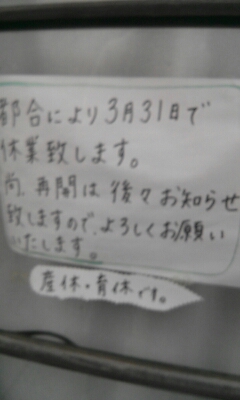 都合により3月31日で
休業致します。
尚、再開は後々お知らせ
致しますので、よろしくお願い
いたします。
産休・育休です。